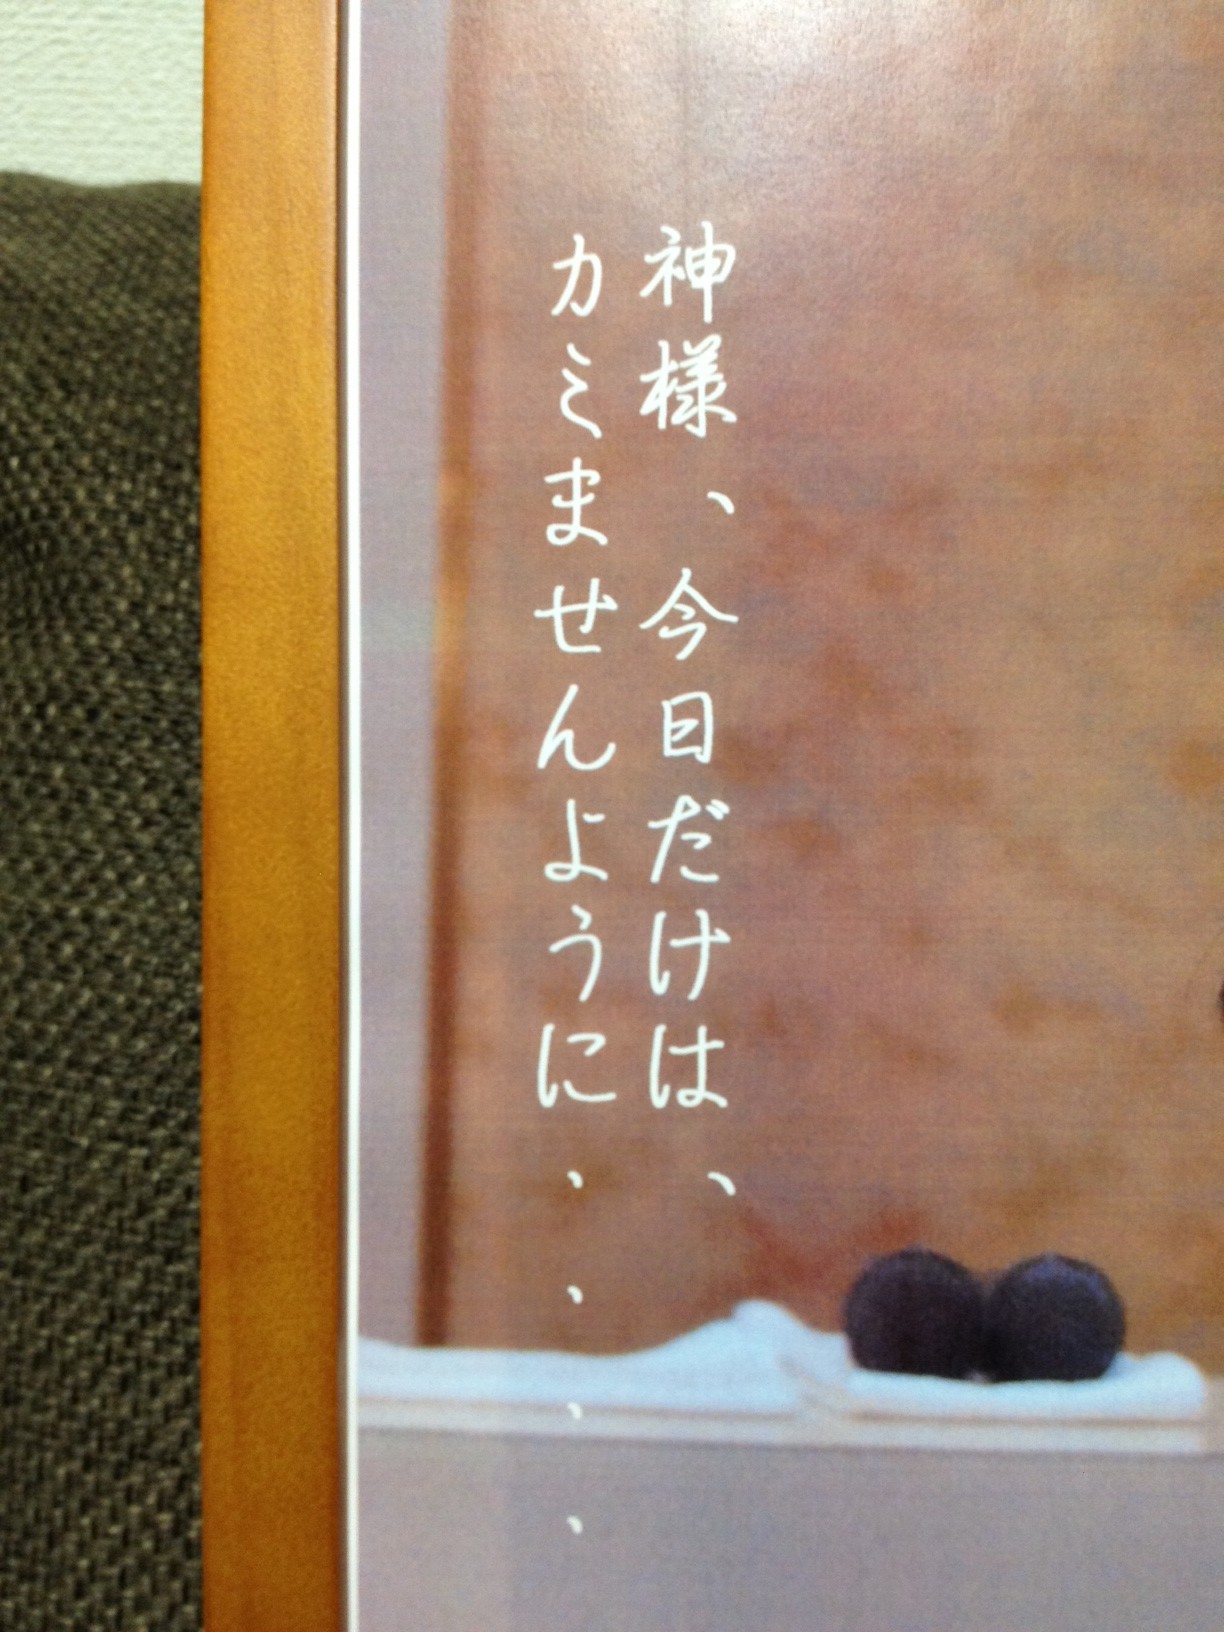 神様、今日だけは、
カミませんように、、、、